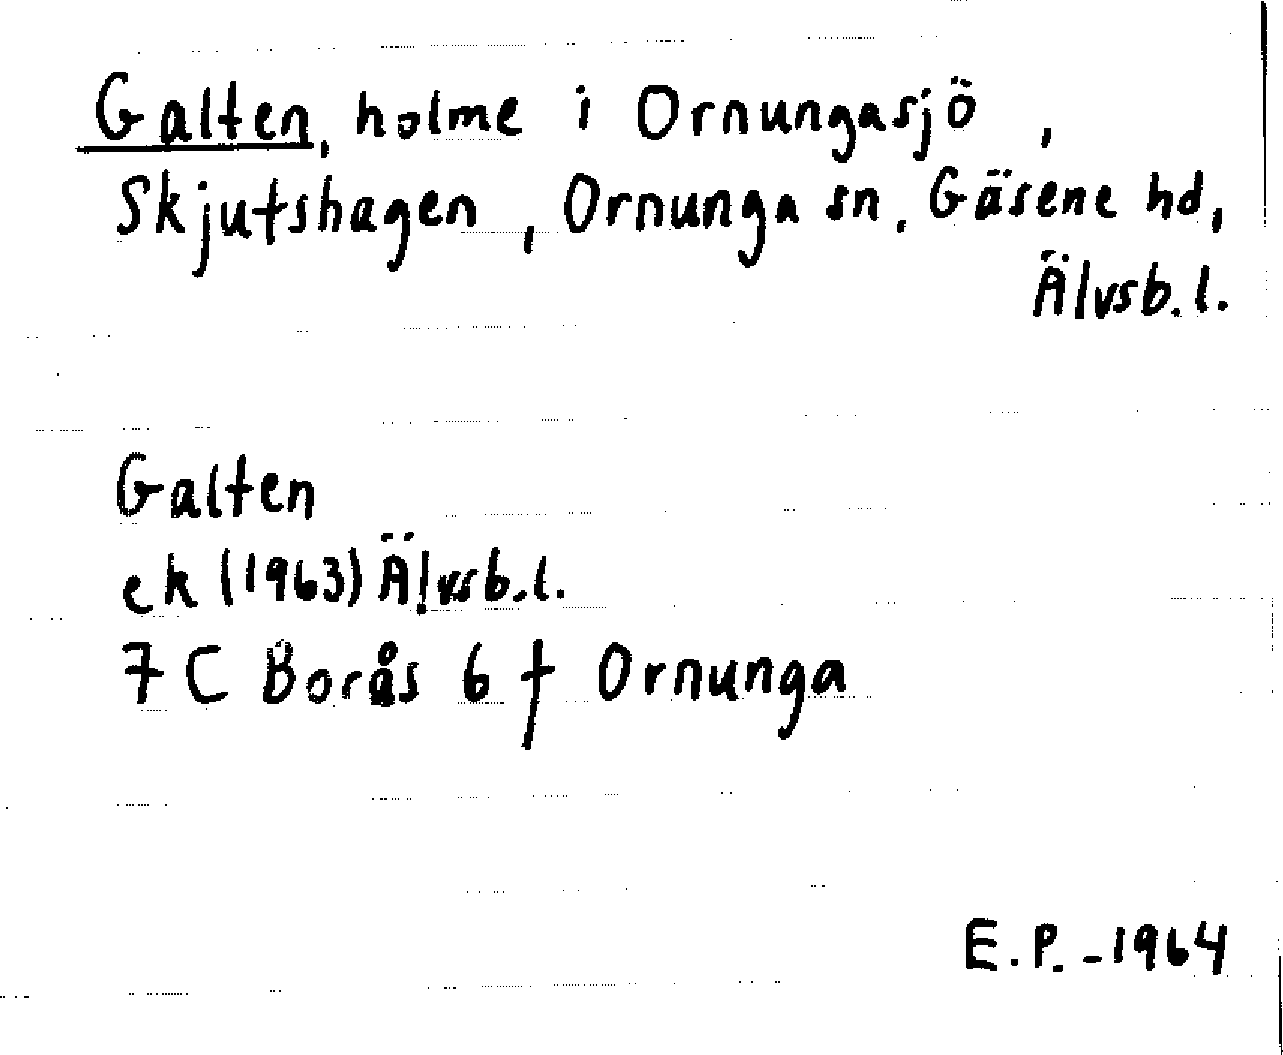 Galten, holme i Ornungasjö,
Skjutshagen, Ornunga sn. Gäsene hd,
Älvsb. l.
Galten
ek (1963) Älvsb. l.
7 C Borås 6 f Ornunga
E. P. - 1964